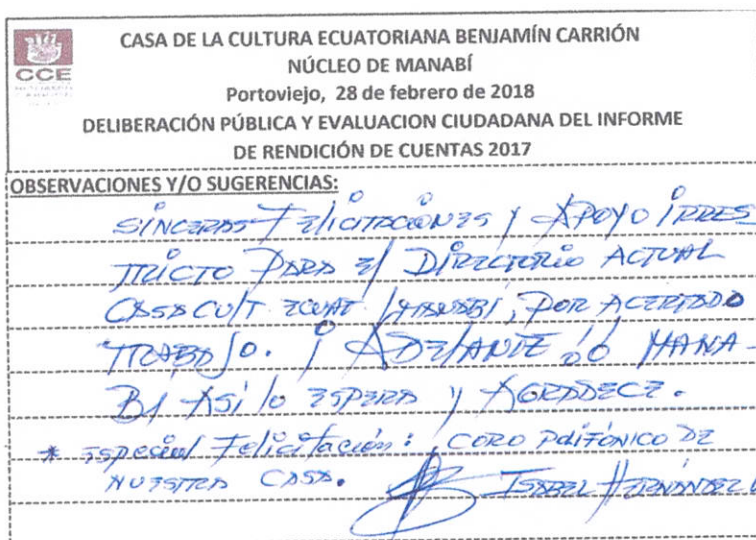 CCE
CASA DE LA CULTURA ECUATORIANA BENJAMÍN CARRIÓN
NÚCLEO DE MANABÍ
Portoviejo, 28 de febrero de 2018
DELIBERACIÓN PÚBLICA Y EVALUACION CIUDADANA DEL INFORME
DE RENDICIÓN DE CUENTAS 2017
OBSERVACIONES Y/O SUGERENCIAS:
SINCERAS FELICITACIONES Y APOYO IRRES
TRICTO PARA El DIRECTORIO ACTUAL
CASA CUlT ECUAT /MANABÍ, POR ACERTADO
TRABAJO. ¡ ADElANTE !! MANA-
BÍ ASÍ lo ESPERA y AGRADECE.
* Especial Felicitación: CORO POlIFÓNICO DE
NUESTRA CASA. ISABEL HERNÁNDEZ